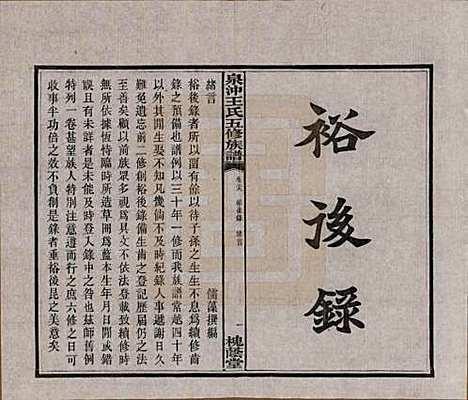 裕後錄
泉沖王氏五修族譜
卷六 裕後錄 諸言
一
槐蔭堂
諸言
儒藻撰編
裕後錄者所以留有餘以待子孫之生生不息爲續修齒
錄之預備也譜例以三十年一修而我族譜常越四十年
始修其間生娶不知凡幾倘不及時紀錄人事遞謝日久
難免遺忘前二修創裕後錄備生齒之登記歷屆仍之法
至善矣顧以前族眾多視爲具文不依法登載或續修時
無所依據恆特臨時所造草開爲藍本生年月日間或錯
誤且有未詳者是未能及時登入錄中之咎也茲師舊例
特列一卷甚望族人實力遵道而行之庶六修之時可以
收事半功倍之效不負創是錄者垂裕後昆之美意矣